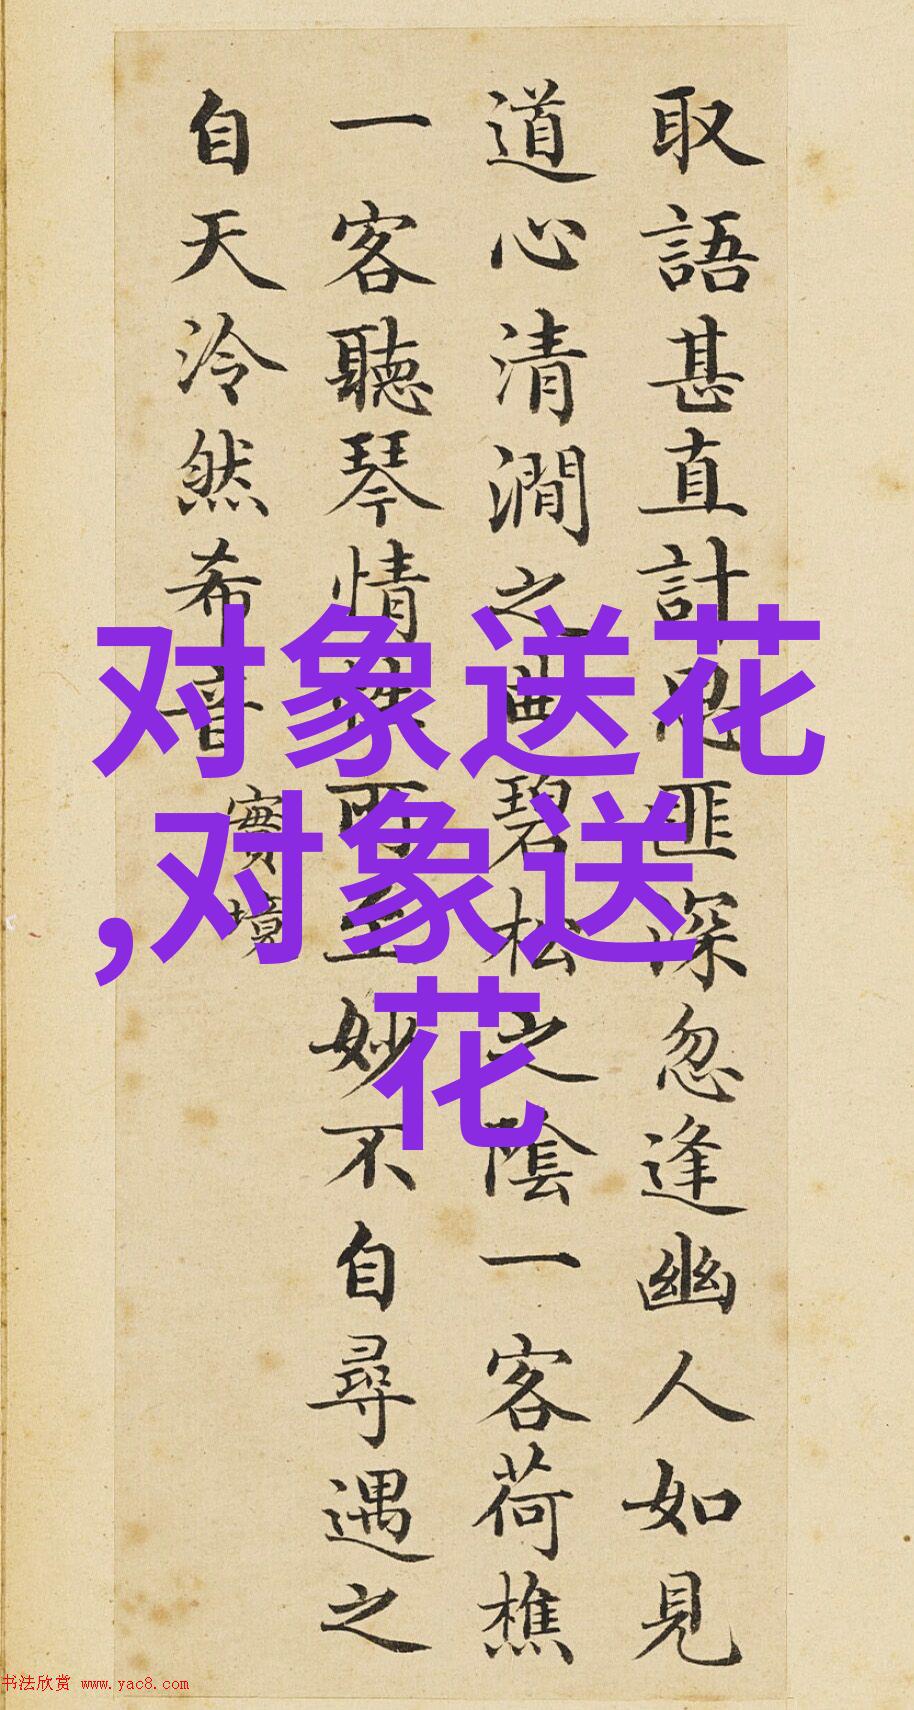 取語甚直計思匪深忽逢幽人如見
道心清澗之曲碧松之陰一客荷樵
一客聽琴情性所至妙不自尋遇之
自天泠然希音
實境
对象送花
,对象送
花
书法欣赏 www.yac8.com